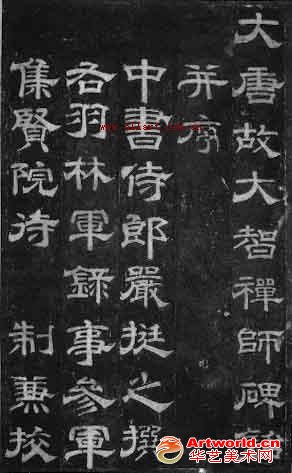 大唐故大智禪師碑
并序
中書侍郎嚴挺之撰
右羽林軍錄事參軍
集賢院待 制兼挍
Artworld.cn
华艺美术网